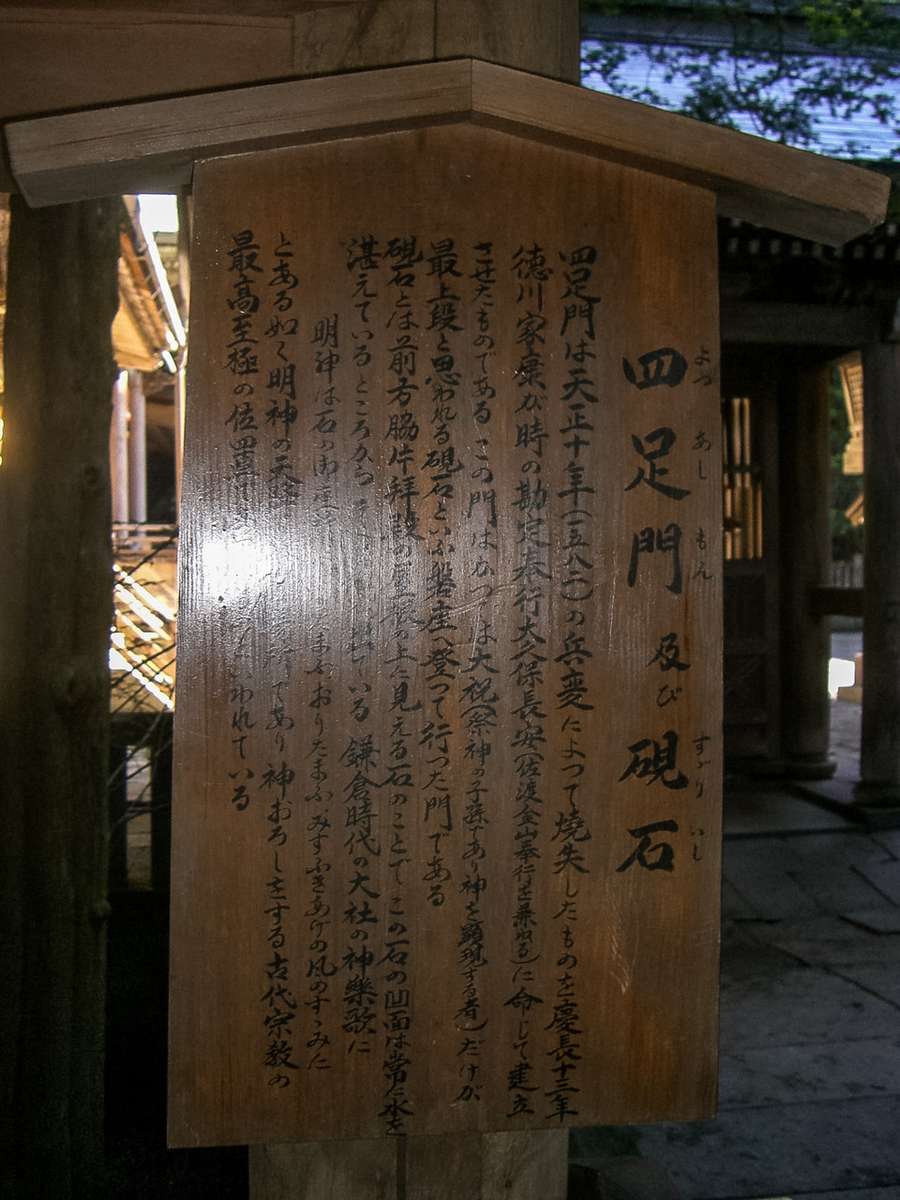 四足門 及び 硯石
よつ あし もん すゞり いし
四足門は天正十年(一五八二)の兵変によって焼失したものを慶長十三年
徳川家康が時の勘定奉行大久保長安(佐渡金山奉行を兼ねる)に命じて建立
させたものである この門はかつては大祝(祭神の子孫であり神を顕現する者)だけが
最上段と思われる硯石といふ磐座へ登つて行つた門である
硯石とは前方脇片拝殿の屋根の上に見える石のことでこの石の凹面は常に水を
湛えているところから ている 鎌倉時代の大社の神樂歌に
明神は石の御座 おりたまふ みすふきあげの風のすゝみに
とある如く明神の天 であり 神おろしをする古代宗教の
最高至極の位置 いわれている